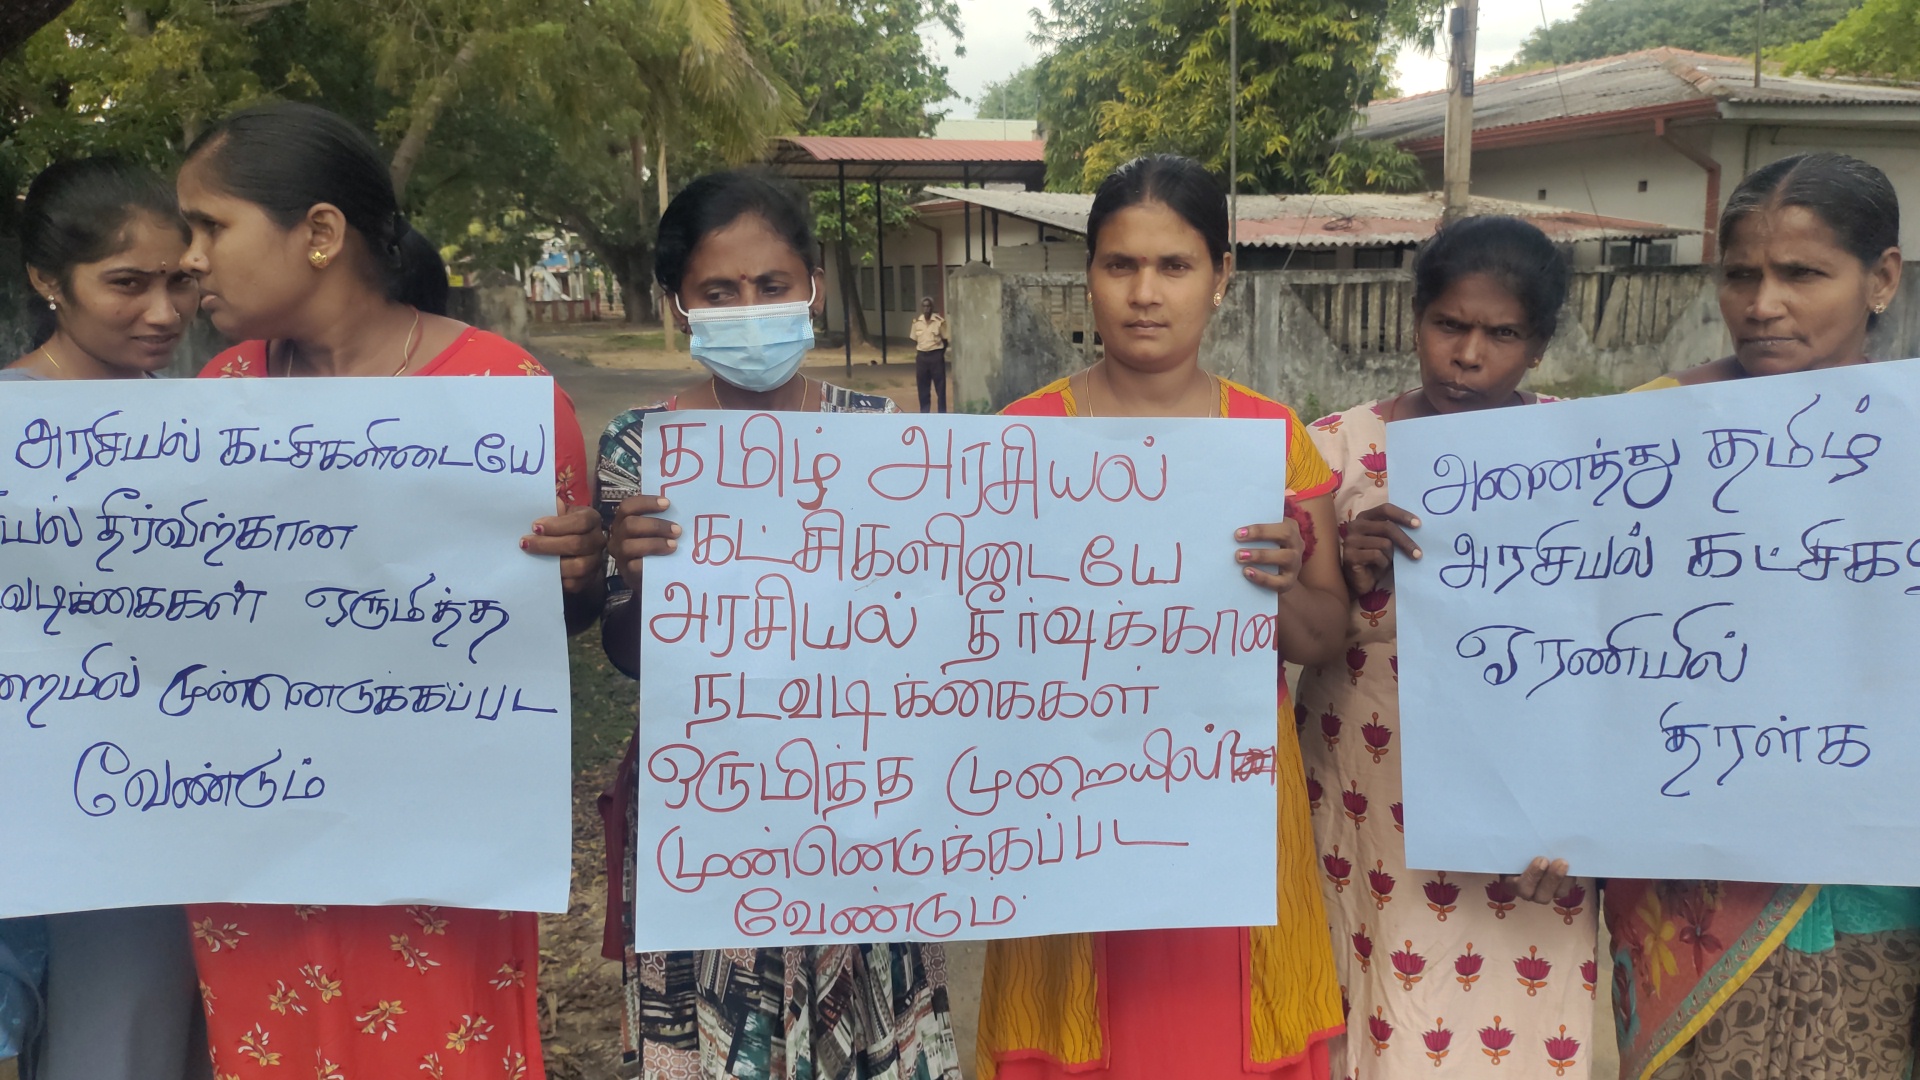 அரசியல் கட்சிகளிடையே
யல் தீர்விற்கான
வடிக்கைகள் ஒருமித்த
றையில் முன்னெடுக்கப்பட
வேண்டும்
தமிழ் அரசியல்
கட்சிகளிடையே
அரசியல் தீர்வுக்கான
நடவடிக்கைகள்
ஒருமித்த முறையில்
முன்னெடுக்கப்பட
வேண்டும்
அனைத்து தமிழ்
அரசியல்
ஓரணியில்
திரள்க